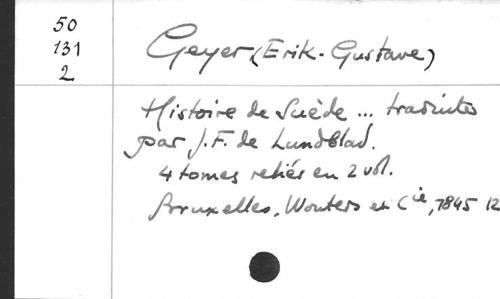 50
131
2
Geyer (Erik-Gustave)
Histoire de Suède ... traduite
par J.F. de Lundblad.
4 tomes reliés en 2 vol.
Bruxelles, Wouters et Cie, 1845 12